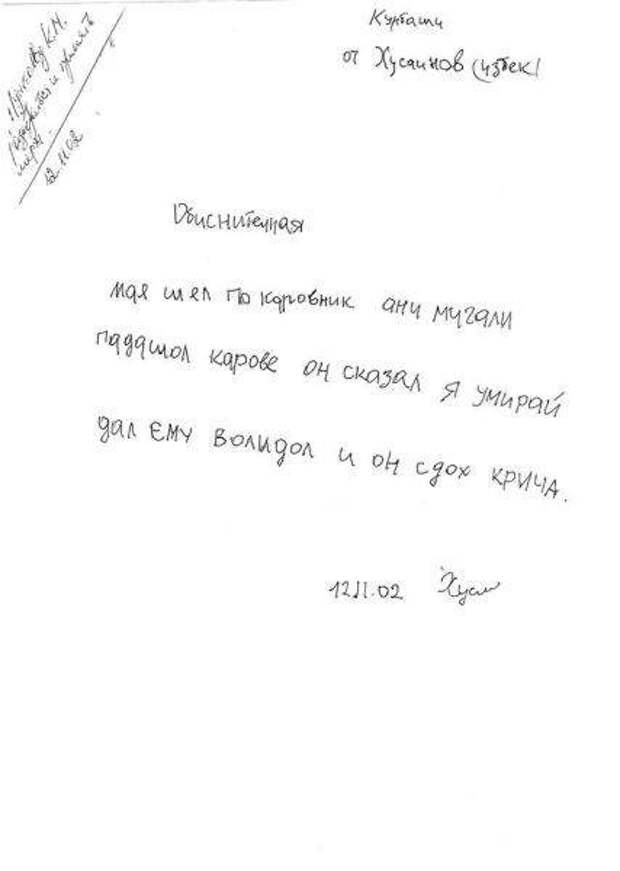 К.М.
разобраться и принять
меры.
12.11.02
Курбаши
от Хусаинов (узбек)
Обиснителная
мая шел по каровник ани мугали
падашол карове он сказал я умирай
дал ему волидол и он сдох крича.
12.11.02 Хуса